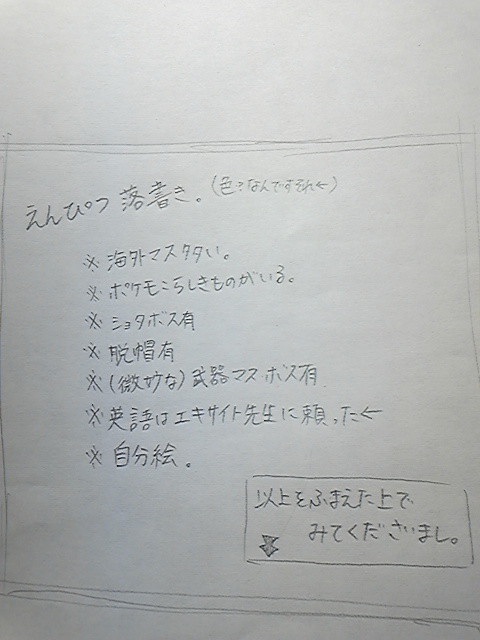 えんぴつ落書き。(色?なんですそれ←)
※海外マスタタい。
※ポケモンらしきものがいる。
※ショタボス有
※脱帽有
※(微妙な)武器マスボス有
※英語はエキサイト先生に頼った←
※自分絵。
以上をふまえた上で
みてくださいまし。